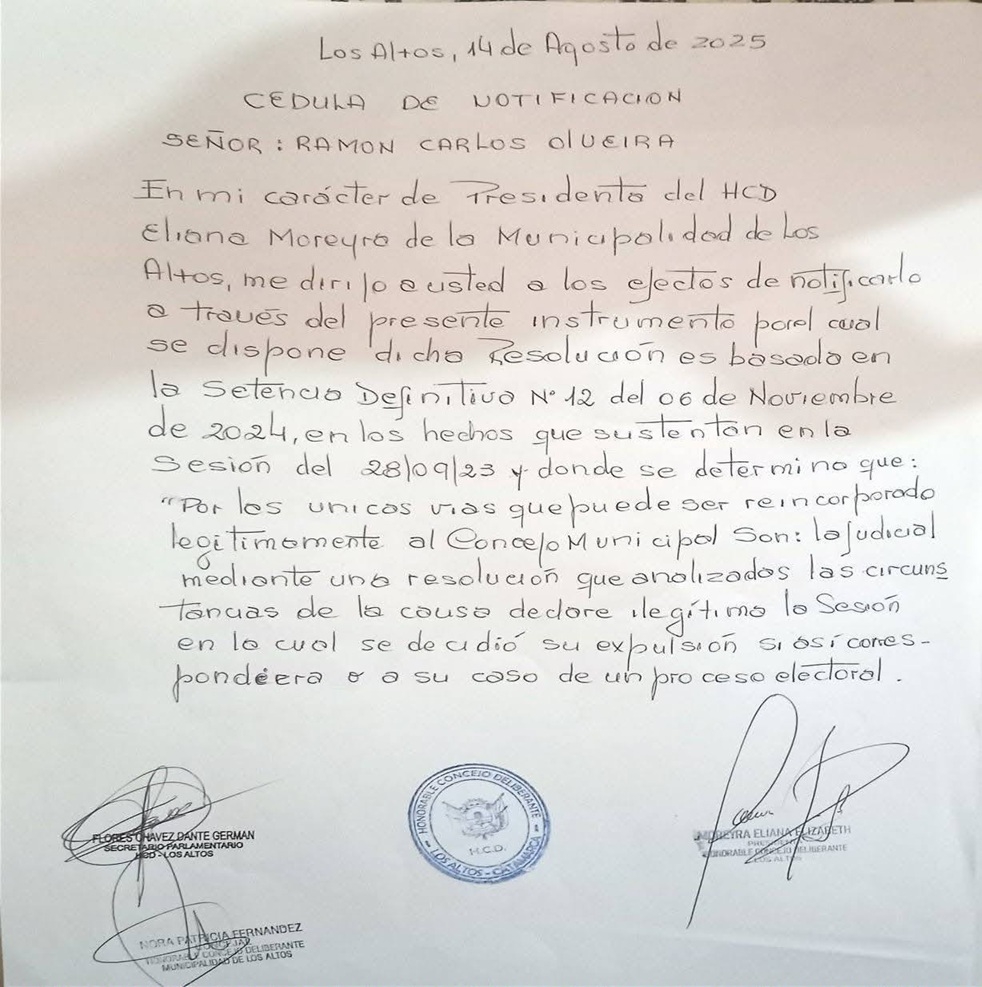 Los Altos, 14 de Agosto de 2025
CEDULA DE NOTIFICACION
SEÑOR: RAMON CARLOS OlVEIRA
En mi carácter de Presidenta del HCD
Eliana Moreyra de la Municipalidad de Los
Altos, me dirijo a usted a los efectos de notificarlo
a través del presente instrumento por el cual
se dispone dicha Resolución es basada en
la Setencia Definitiva N° 12 del 06 de Noviembre
de 2024, en los hechos que sustentan en la
Sesión del 28/09/23 y donde se determino que:
"Por las unicas vias que puede ser reincorporado
legítimamente al Concejo Municipal Son: la Judicial
mediante una resolución que analizados las circuns
tancias de la causa declare ilegítima la Sesión
en la cual se decidió su expulsión si así corres-
pondéera o a su caso de un proceso electoral.
FLORES CHAVEZ DANTE GERMAN
SECRETARIO PARLAMENTARIO
HCD - LOS ALTOS
HONORABLE CONCEJO DELIBERANTE
H.C.D.
LOS ALTOS - CATAMARCA
MOREYRA ELIANA ELIZABETH
PRESIDENTE
HONORABLE CONCEJO DELIBERANTE
LOS ALTOS
NORA PATRICIA FERNANDEZ
CONCEJAL
HONORABLE CONCEJO DELIBERANTE
MUNICIPALIDAD DE LOS ALTOS